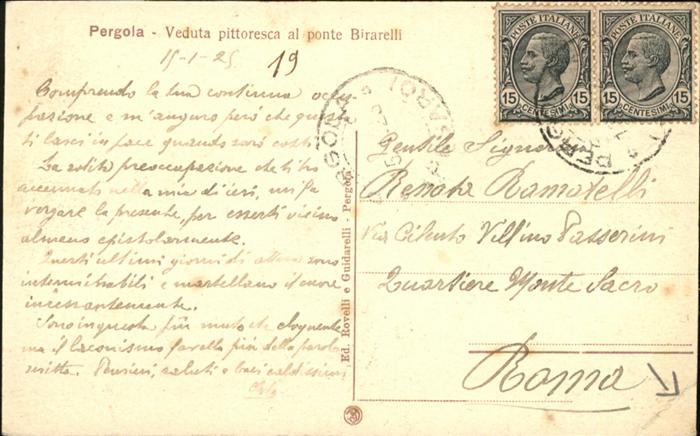 Pergola - Veduta pittoresca al ponte Birarelli
15-1-25
19
POSTE ITALIANE
15 CENTESIMI 15
POSTE ITALIANE
15 CENTESIMI 15
Comprendo la tua continua occu-
pazione e m'auguro però che questa
ti lasci in pace quando sarò costì
La solita preoccupazione che ti ho
accennata nella mia di ieri, mi fa
vergare la presente, per esserti vicino
almeno epistolarmente.
Questi ultimi giorni di attesa sono
interminabili e martellano il cuore
incessantemente.
Sono in questa più muto che eloquente
ma il laconismo favella più della parola
scritta. Pensieri, saluti e baci caldissimi
Ed. Rovelli e Guidarelli - Pergola
Gentile Signorina
Renata Ramatelli
Via Cilento Villino Passerini
Quartiere Monte Sacro
Roma